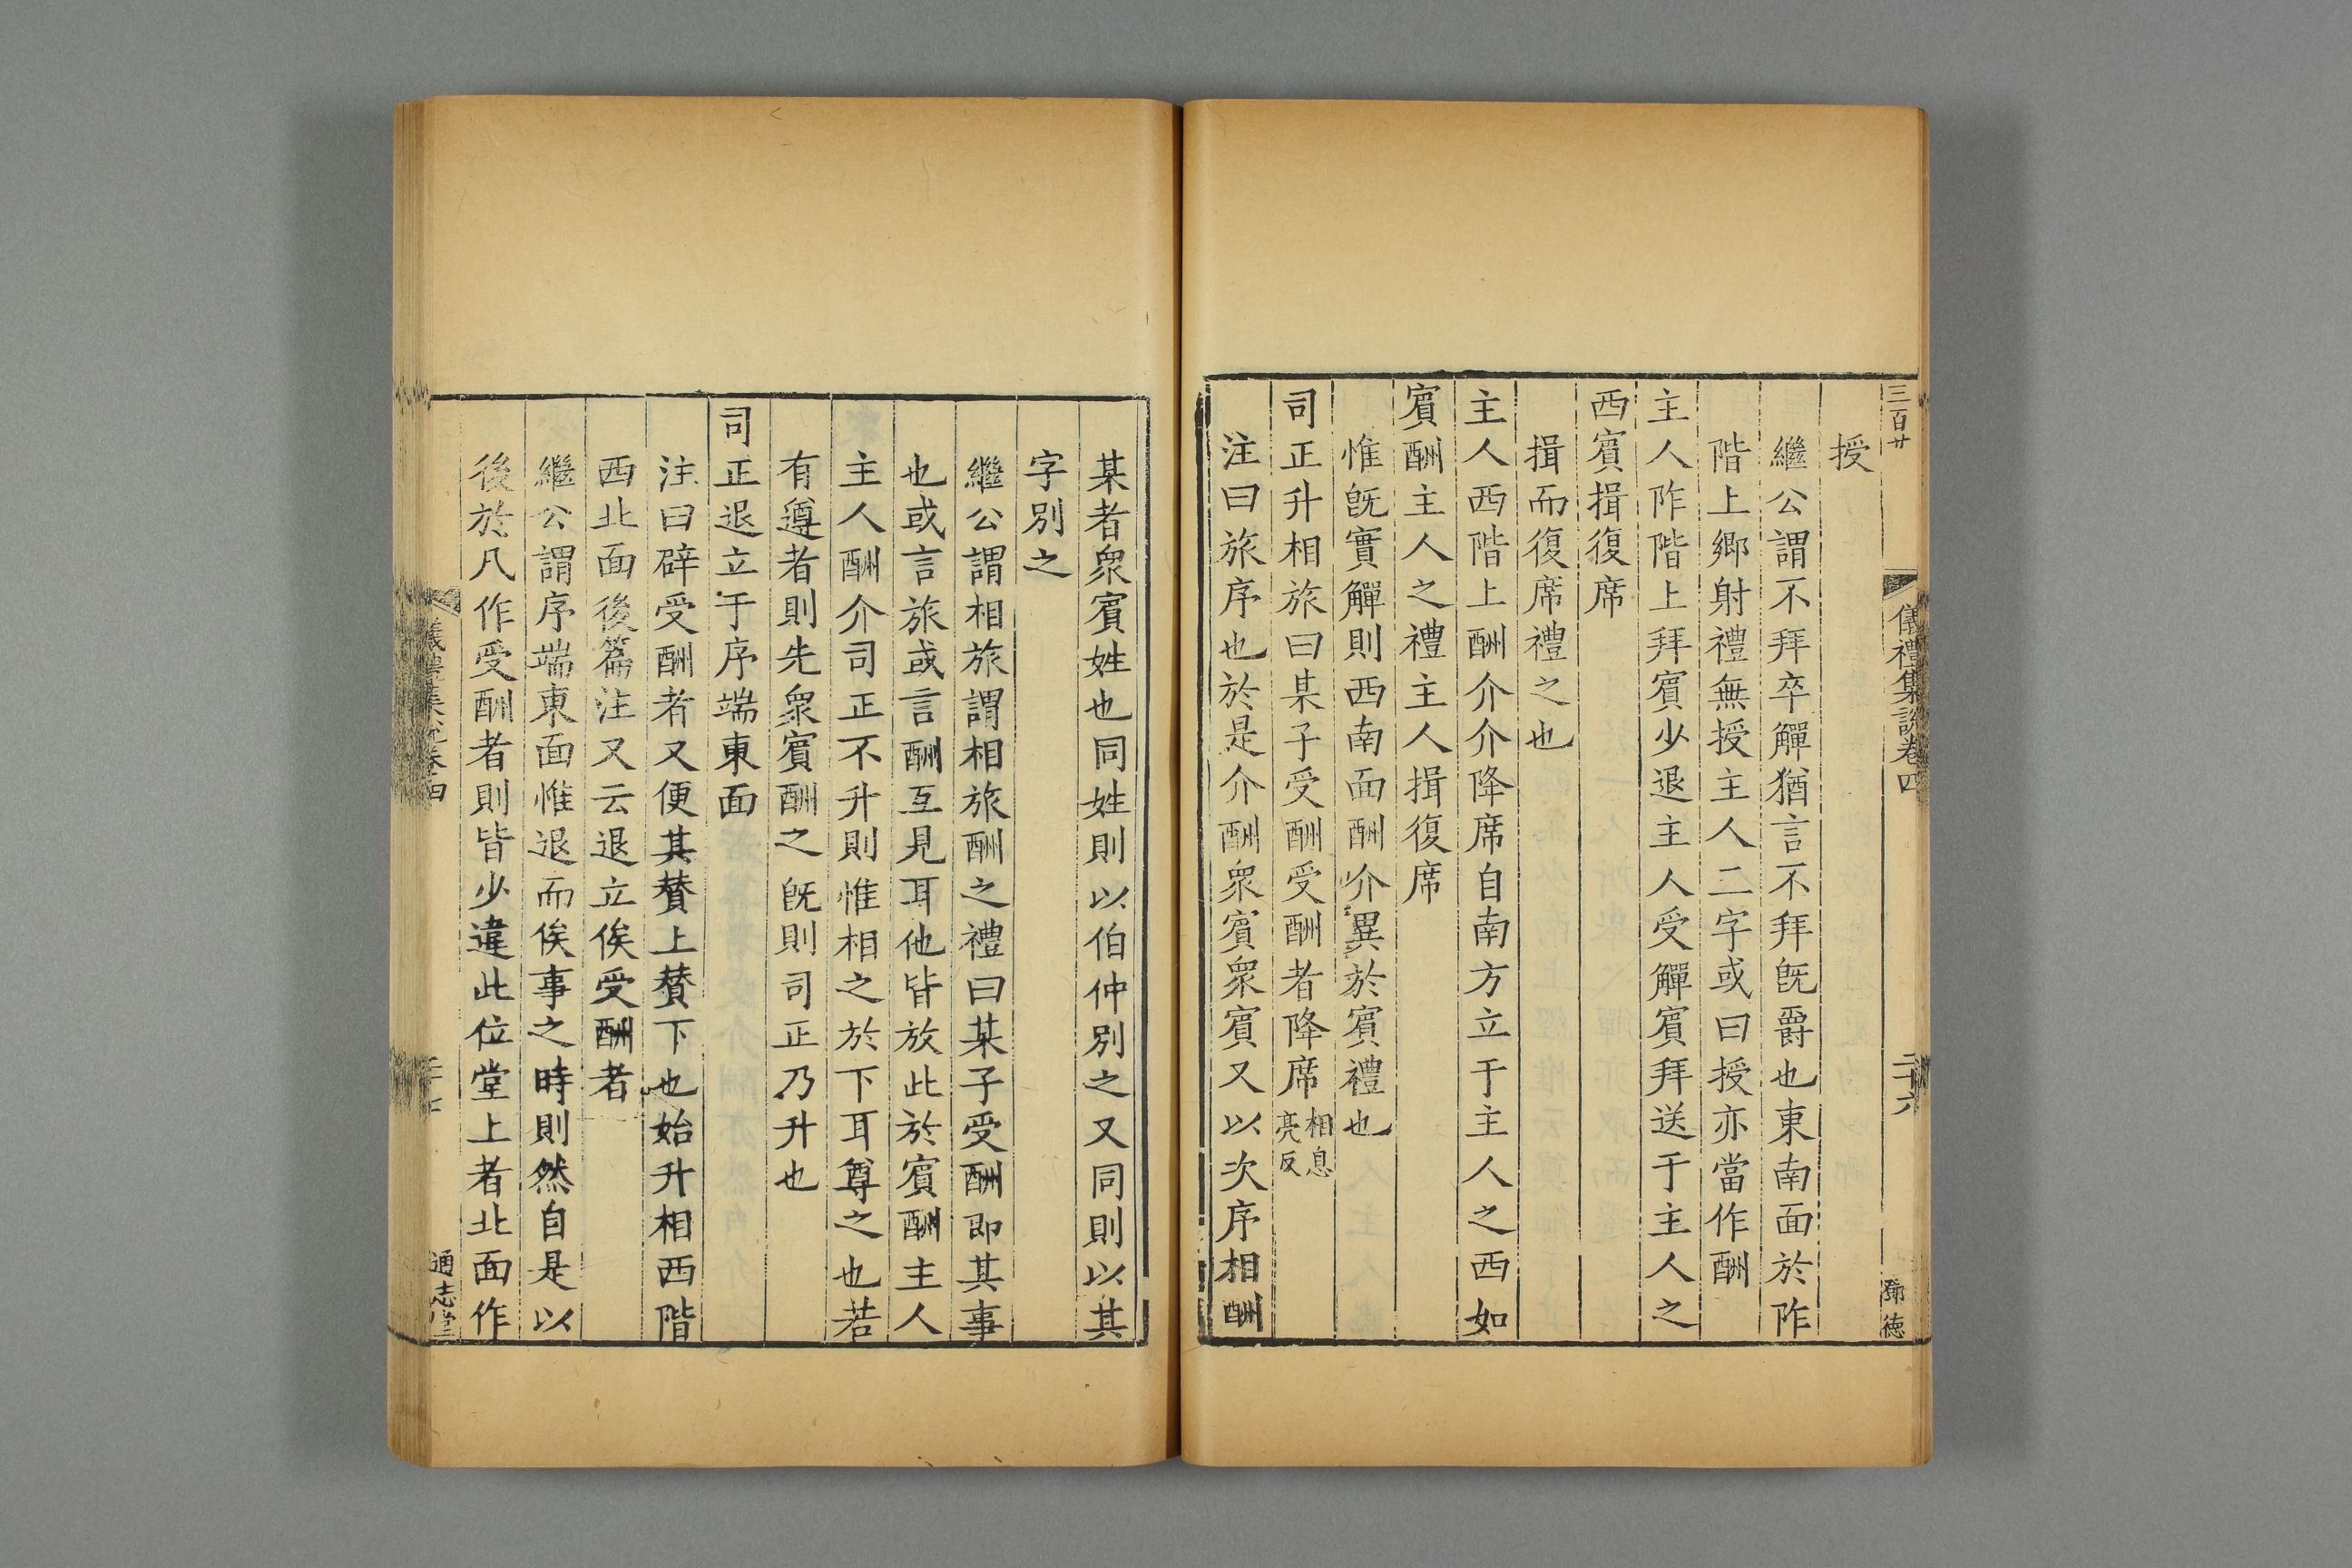 三百廿
儀禮集說卷四
二十六
鄧德
授
繼公謂不拜卒觶猶言不拜旣爵也東南面於阼
階上鄉射禮無授主人二字或曰授亦當作酬
主人阼階上拜賓少退主人受觶賓拜送于主人之
西賓揖復席
揖而復席禮之也
主人西階上酬介介降席自南方立于主人之西如
賓酬主人之禮主人揖復席
惟旣實觶則西南面酬介異於賓禮也
司正升相旅曰某子受酬受酬者降席相息亮反
注曰旅序也於是介酬眾賓眾賓又以次序相酬
某者眾賓姓也同姓則以伯仲別之又同則以其
字別之
繼公謂相旅謂相旅酬之禮曰某子受酬卽其事
也或言旅或言酬互見耳他皆放此於賓酬主人
主人酬介司正不升則惟相之於下耳尊之也若
有遵者則先眾賓酬之旣則司正乃升也
司正退立于序端東面
注曰辟受酬者又便其贊上贊下也始升相西階
西北面後篇注又云退立俟受酬者
繼公謂序端東面惟退而俟事之時則然自是以
後於凡作受酬者則皆少違此位堂上者北面作
儀禮集說卷四
二十七
通志堂